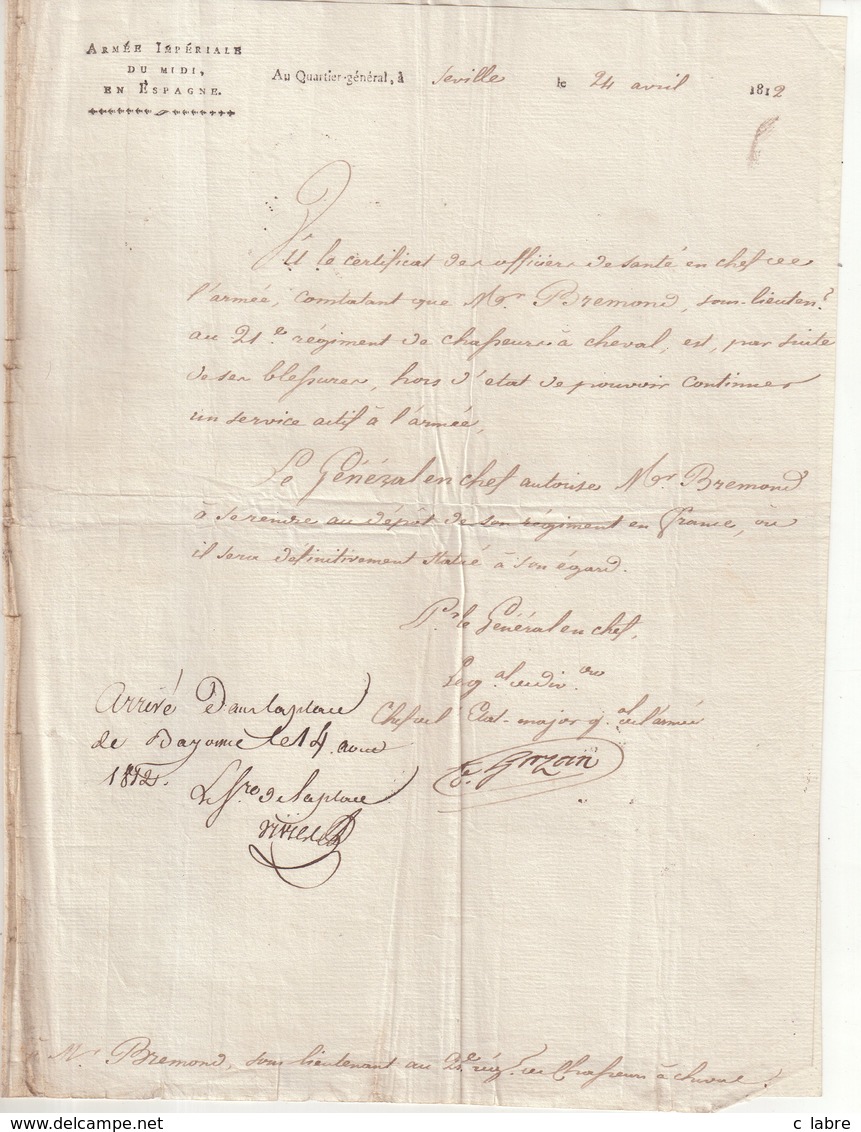 ARMÉE IMPÉRIALE
DU MIDI,
EN ESPAGNE.
Au Quartier-général, à Seville le 24 avril 1812
Vu le certificat des officiers de santé en chef de
l'armée, constatant que Mr. Bremond, sous-lieutent
au 21.e régiment de chasseurs à cheval, est, par suite
de ses blessures, hors d'état de pouvoir continuer
un service actif à l'armée,
Le Général en chef autorise Mr. Bremond
à se rendre au dépôt de son régiment en france, où
il sera définitivement statué à son égard.
Pr. le Général en chef,
Le gal. de divon.
Chef de l'Etat-major gal. de l'armée
Gazan
Arrivé Dans la place
de Bayonne le 14 aout
1812.
de la place
Mr. Bremond, sous lieutenant au 21e. régt. de Chasseurs à cheval.
c labre